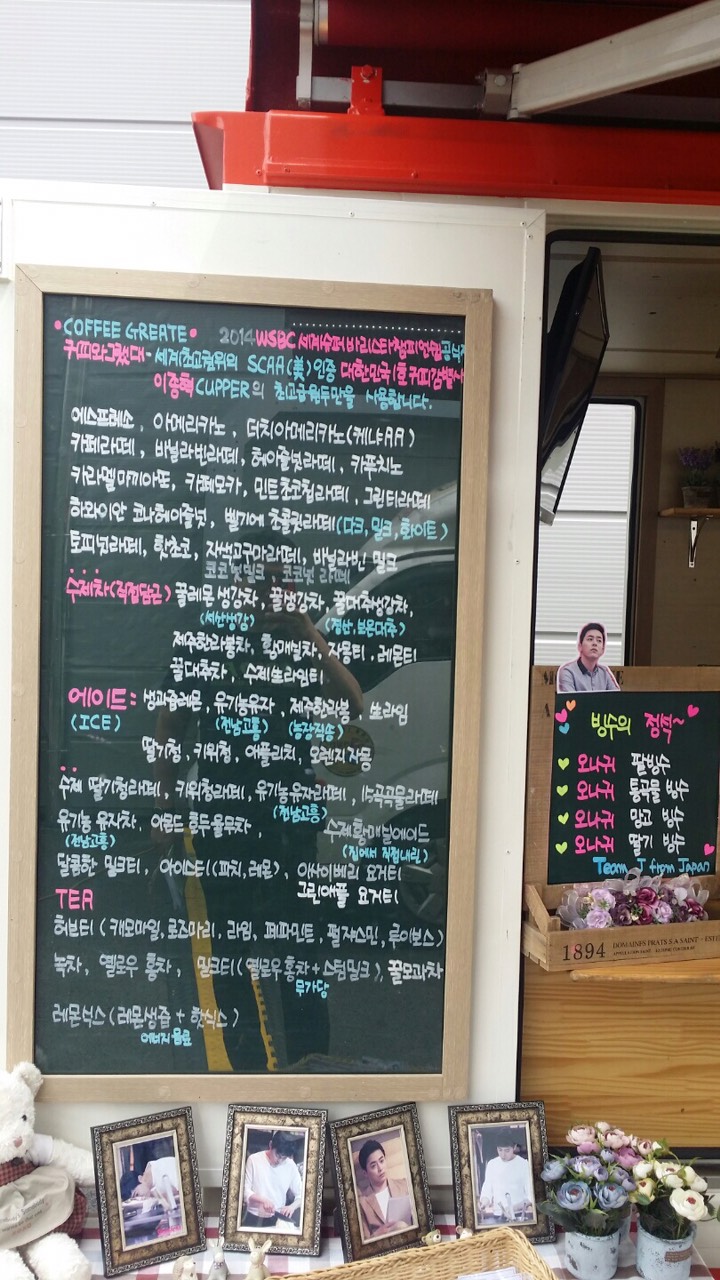 COFFEE GREATE 2014 WSBC 세계슈퍼바리스타챔피언쉽 공식
커피와그랬대 - 세계최고권위의 SCAA(美)인증 대한민국1호커피감별사
이종혁 CUPPER의 최고급원두만을 사용합니다.
에스프레소, 아메리카노, 더치아메리카노(케냐AA)
카페라떼, 바닐라빈라떼, 헤이즐넛라떼, 카푸치노
카라멜마끼아또, 카페모카, 민트초코칩라떼, 그린티라떼
하와이안 코나헤이즐넛, 벨기에 초콜릿라떼(다크, 밀크, 화이트)
토피넛라떼, 핫초코, 자색고구마라떼, 바닐라빈 밀크
코코넛밀크, 코코넛 라떼
수제차(직접담근) 꿀레몬생강차, 꿀생강차, 꿀대추생강차,
(서산생강) (경산,보은대추)
제주한라봉차, 황매실차, 자몽티, 레몬티
꿀대추차, 수제쏘라임티
에이드: 생과즙레몬, 유기농유자, 제주한라봉, 쏘라임
(ICE) (전남고흥) (농장직송)
딸기청, 키위청, 애플리치, 오렌지자몽
수제 딸기청라떼, 키위청라떼, 유기농유자라떼, 15곡곡물라떼
(전남고흥)
유기농 유자차, 아몬드 호두율무차, 수제황매실에이드
(전남고흥) (집에서 직접내린)
달콤한 밀크티, 아이스티(피치,레몬), 아싸이베리 요거티
그린애플 요거티
TEA
허브티(캐모마일,로즈마리, 라임, 페파민트, 펄자스민, 루이보스)
녹차, 옐로우 홍차, 밀크티(옐로우홍차+스팀밀크), 꿀모과차
무가당
레몬식스(레몬생즙 + 핫식스)
에너지음료
빙수의 정석~
오나귀 팥빙수
오나귀 통곡물 빙수
오나귀 망고 빙수
오나귀 딸기 빙수
Team J from Japan
1894 DOMAINES PRATS S.A SAINT - ESTE